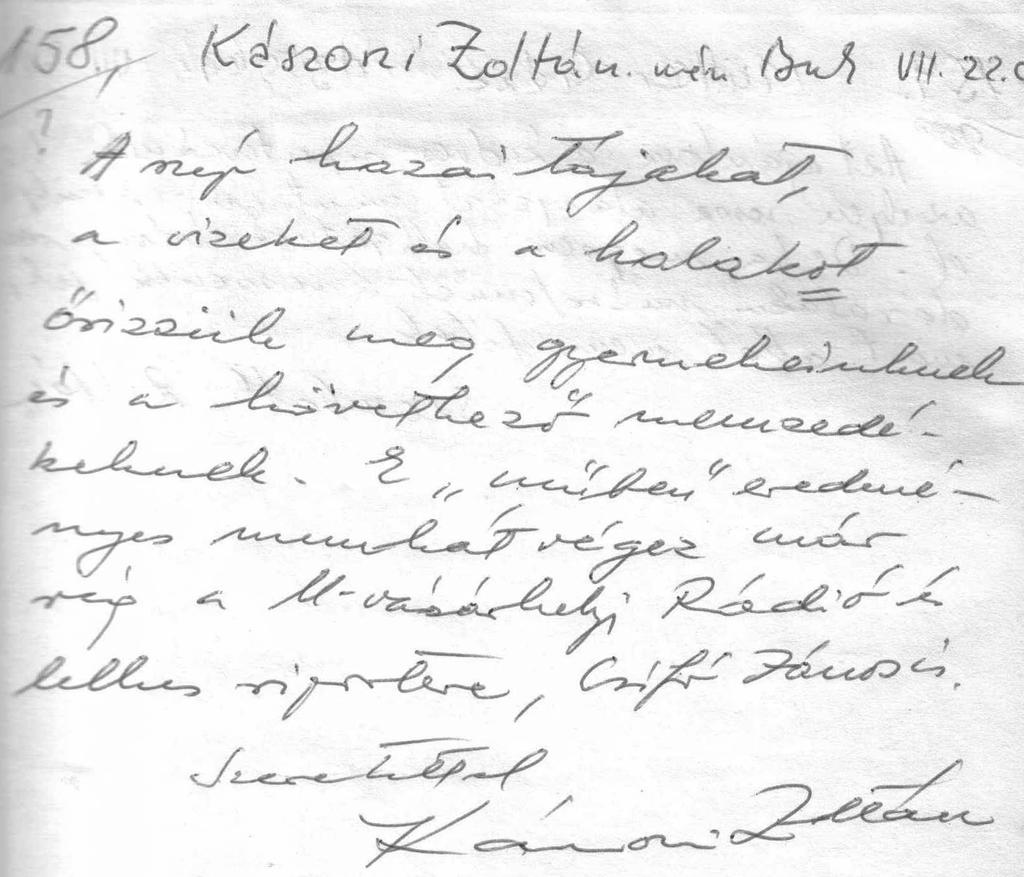 158., Kászoni Zoltán. Buk VII. 22.
?
A szép hazai tájakat,
a vizeket és a halakat
őrizzük meg gyermekeinknek
és a következő nemzedé-
keknek. E „műben" eredmé-
nyes munkát végez már
rég a M-vásárhelyi Rádió és
lelkes riportere, Csifó János is.
Szeretettel
Kászoni Zoltán